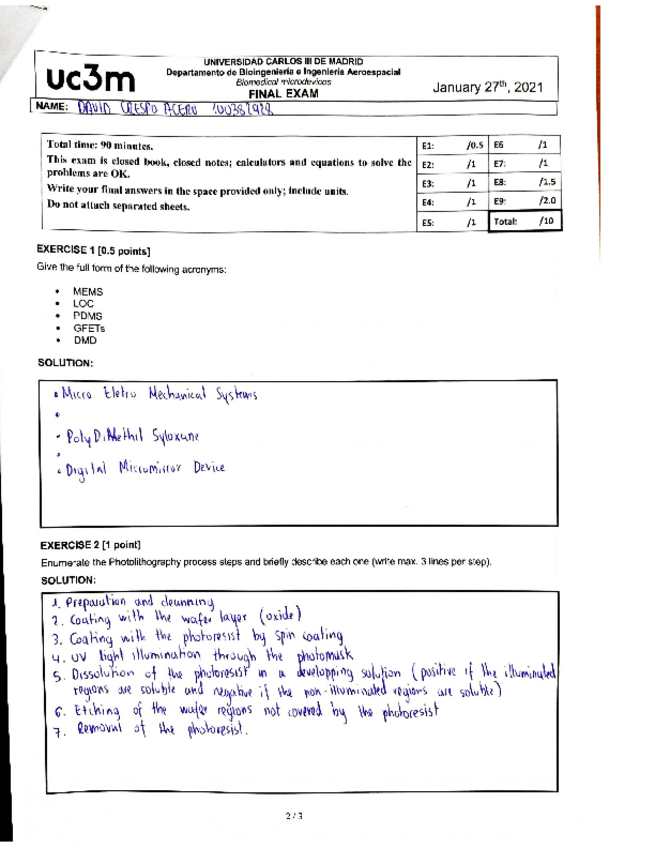 uc3m
UNIVERSIDAD CARLOS III DE MADRID
Departamento de Bioingeniería e Ingeniería Aeroespacial
Biomedical microdevices
FINAL EXAM
January 27th, 2021
NAME: DAVID CRESPO ACERO
Total time: 90 minutes.
This exam is closed book, closed notes; calculators and equations to solve the
problems are OK.
Write your final answers in the space provided only; include units.
Do not attach separated sheets.
E1: /0.5 E6 /1
E2: /1 E7: /1
E3: /1 E8: /1.5
E4: /1 E9: /2.0
E5: /1 Total: /10
EXERCISE 1 [0.5 points]
Give the full form of the following acronyms:
• MEMS
• LOC
• PDMS
• GFETs
• DMD
SOLUTION:
• Micro Eletro Mechanical Systems
•
• Poly DiMethil Syloxane
•
• Digital Micromirror Device
EXERCISE 2 [1 point]
Enumerate the Photolithography process steps and briefly describe each one (write max. 3 lines per step).
SOLUTION:
1. Preparation and cleanning
2. Coating with the wafer layer (oxide)
3. Coating with the photoresist by spin coating
4. UV light illumination through the photomask
5. Dissolution of the photoresist in a developping solution (positive if the illuminated
regions are soluble and negative if the non-illuminated regions are soluble)
6. Etching of the wafer regions not covered by the photoresist
7. Removal of the photoresist.
2 / 3